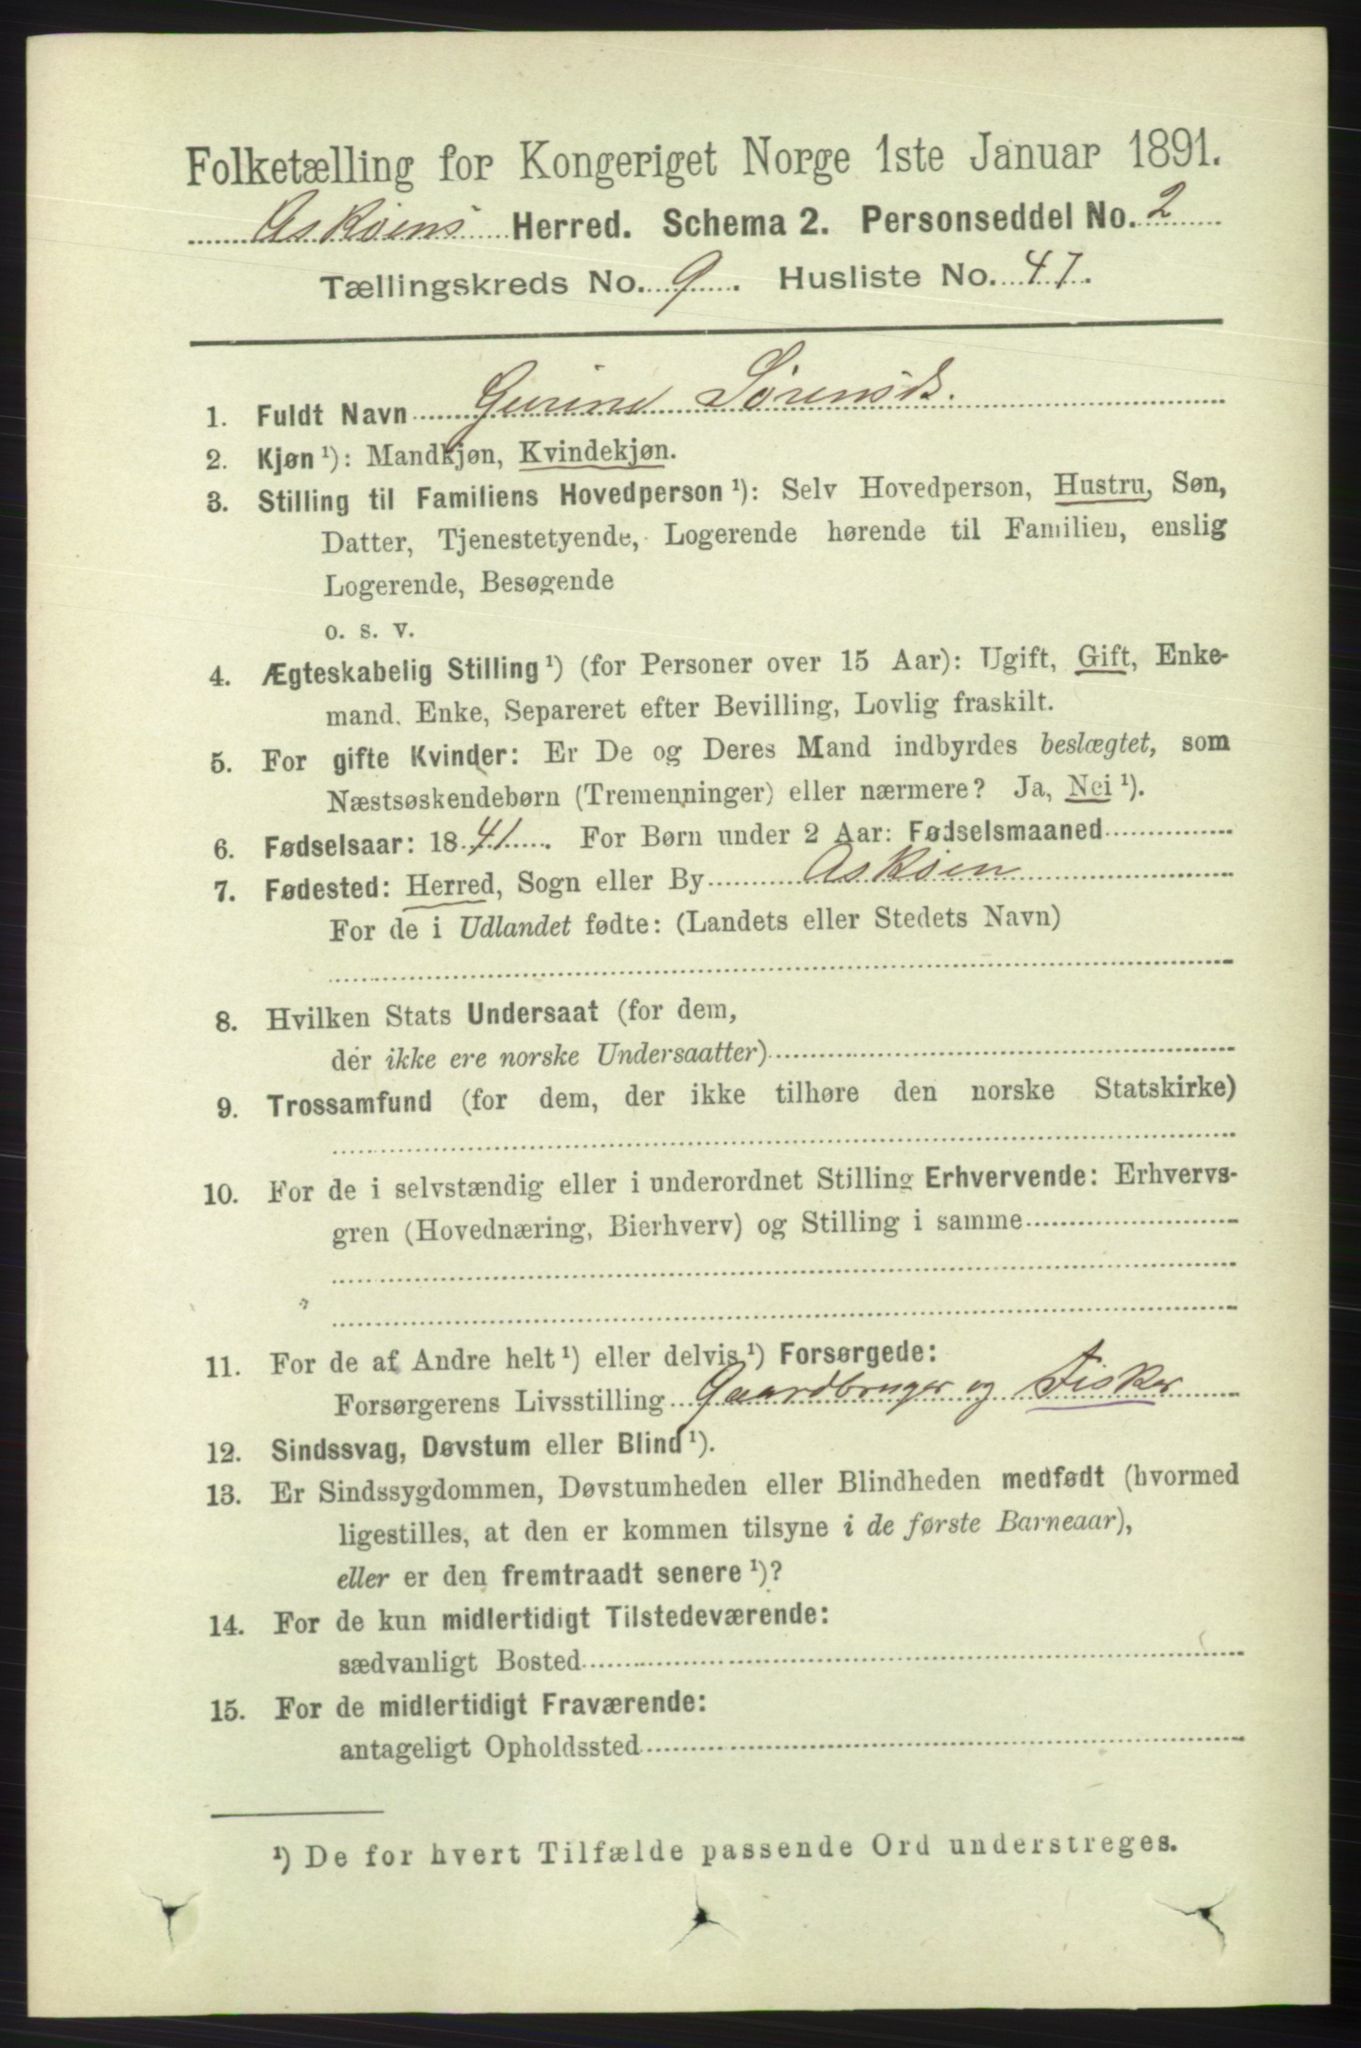 Folketælling for Kongeriget Norge 1ste Januar 1891.
Askøens Herred. Schema 2. Personseddel No. 2
Tællingskreds No. 9. Husliste No. 47.
1. Fuldt Navn Gurine Sørensdt.
2. Kjøn ¹): Mandkjøn, Kvindekjøn.
3. Stilling til Familiens Hovedperson ¹): Selv Hovedperson, Hustru, Søn,
Datter, Tjenestetyende, Logerende hørende til Familien, enslig
Logerende, Besøgende
o. s. v.
4. Ægteskabelig Stilling ¹) (for Personer over 15 Aar): Ugift, Gift, Enke-
mand. Enke, Separeret efter Bevilling, Lovlig fraskilt.
5. For gifte Kvinder: Er De og Deres Mand indbyrdes beslægtet, som
Næstsøskendebørn (Tremenninger) eller nærmere? Ja, Nei ¹).
6. Fødselsaar: 1841. For Børn under 2 Aar: Fødselsmaaned
7. Fødested: Herred, Sogn eller By Askøen
For de i Udlandet fødte: (Landets eller Stedets Navn)
8. Hvilken Stats Undersaat (for dem,
der ikke ere norske Undersaatter)
9. Trossamfund (for dem, der ikke tilhøre den norske Statskirke)
10. For de i selvstændig eller i underordnet Stilling Erhvervende: Erhvervs-
gren (Hovednæring, Bierhverv) og Stilling i samme
11. For de af Andre helt ¹) eller delvis ¹) Forsørgede:
Forsørgerens Livsstilling Gaardbruger og Fisker
12. Sindssvag, Døvstum eller Blind ¹).
13. Er Sindssygdommen, Døvstumheden eller Blindheden medfødt (hvormed
ligestilles, at den er kommen tilsyne i de første Barneaar),
eller er den fremtraadt senere ¹)?
14. For de kun midlertidigt Tilstedeværende:
sædvanligt Bosted
15. For de midlertidigt Fraværende:
antageligt Opholdssted
¹) De for hvert Tilfælde passende Ord understreges.